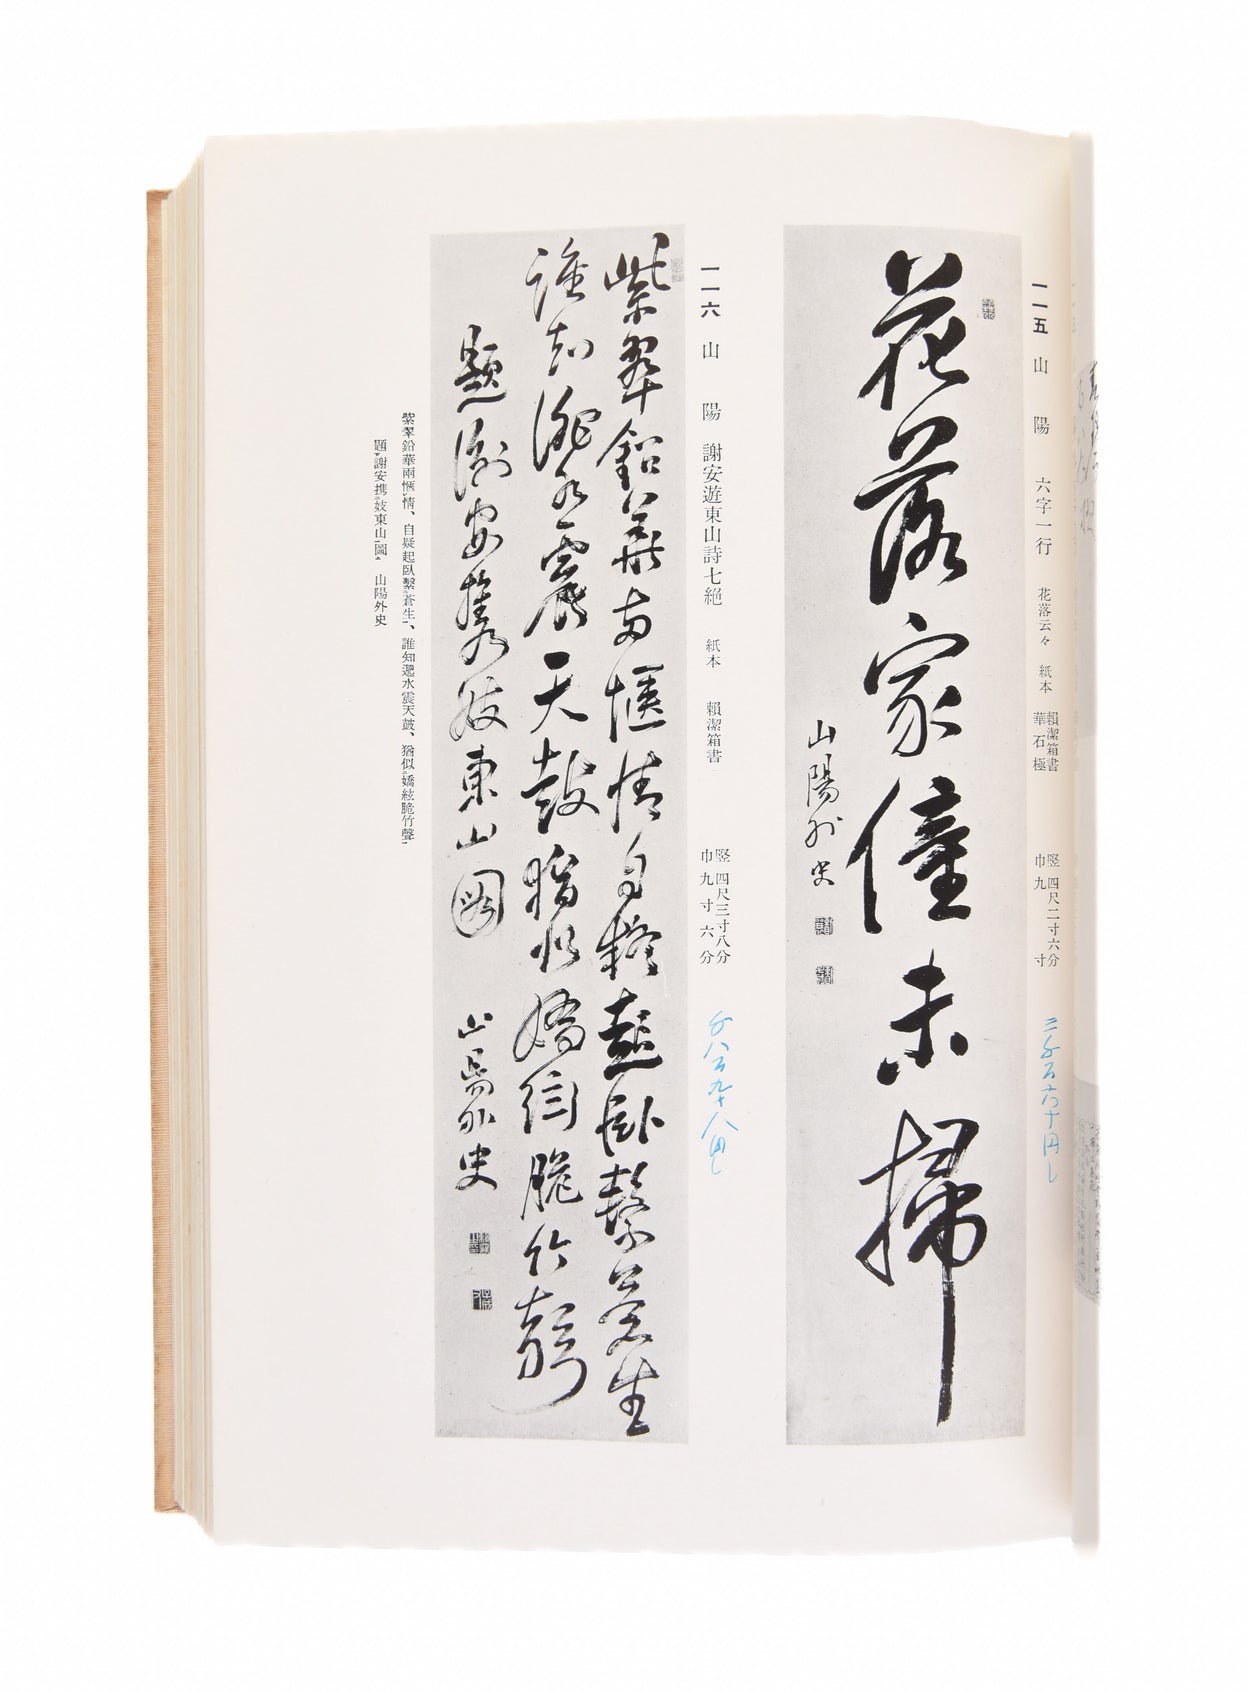 一一五 山 陽 六字一行 花落云々 紙本 賴潔箱書 華石極 竪四尺二寸六分 巾九寸
花落家僮未掃
山陽外史
一一六 山 陽 謝安遊東山詩七絶 紙本 賴潔箱書 竪四尺三寸八分 巾九寸六分
千八百九十八円し
紫翠鉛華兩愜情自疑起臥繫蒼生
誰知淝水震天鼓猶似嬌絃脆竹聲
題謝安携妓東山圖 山陽外史
紫翠鉛華兩愜情、自疑起臥繫蒼生、誰知淝水震天鼓、猶似嬌絃脆竹聲、
題謝安携妓東山圖 山陽外史